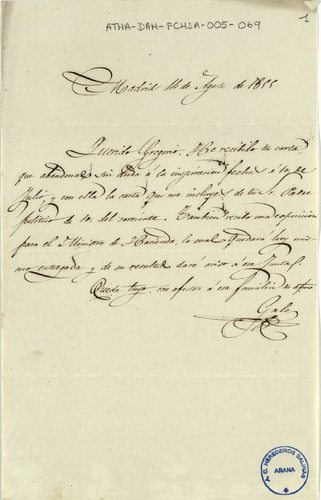 ATHA-DAH-FCHSA-005-069
1
Madrid 14 de Agosto de 1855
Querido Gregorio: He recibido tu carta
que abandonas sin duda a la inspiracion fecha á 10 de
Julio, y con ella la carta que me incluyes de tu Sr. Padre
político de 10. del corriente. Tambien recibo una esposicion
para el Ministro de Hacienda, la cual quedará hoy mis-
mo entregada y de su resultado daré aviso á esa Junta.
Queda tuyo con afectos á esa familia tu afmo
Galo
A.C. HEREDEROS SALINAS
AÑANA